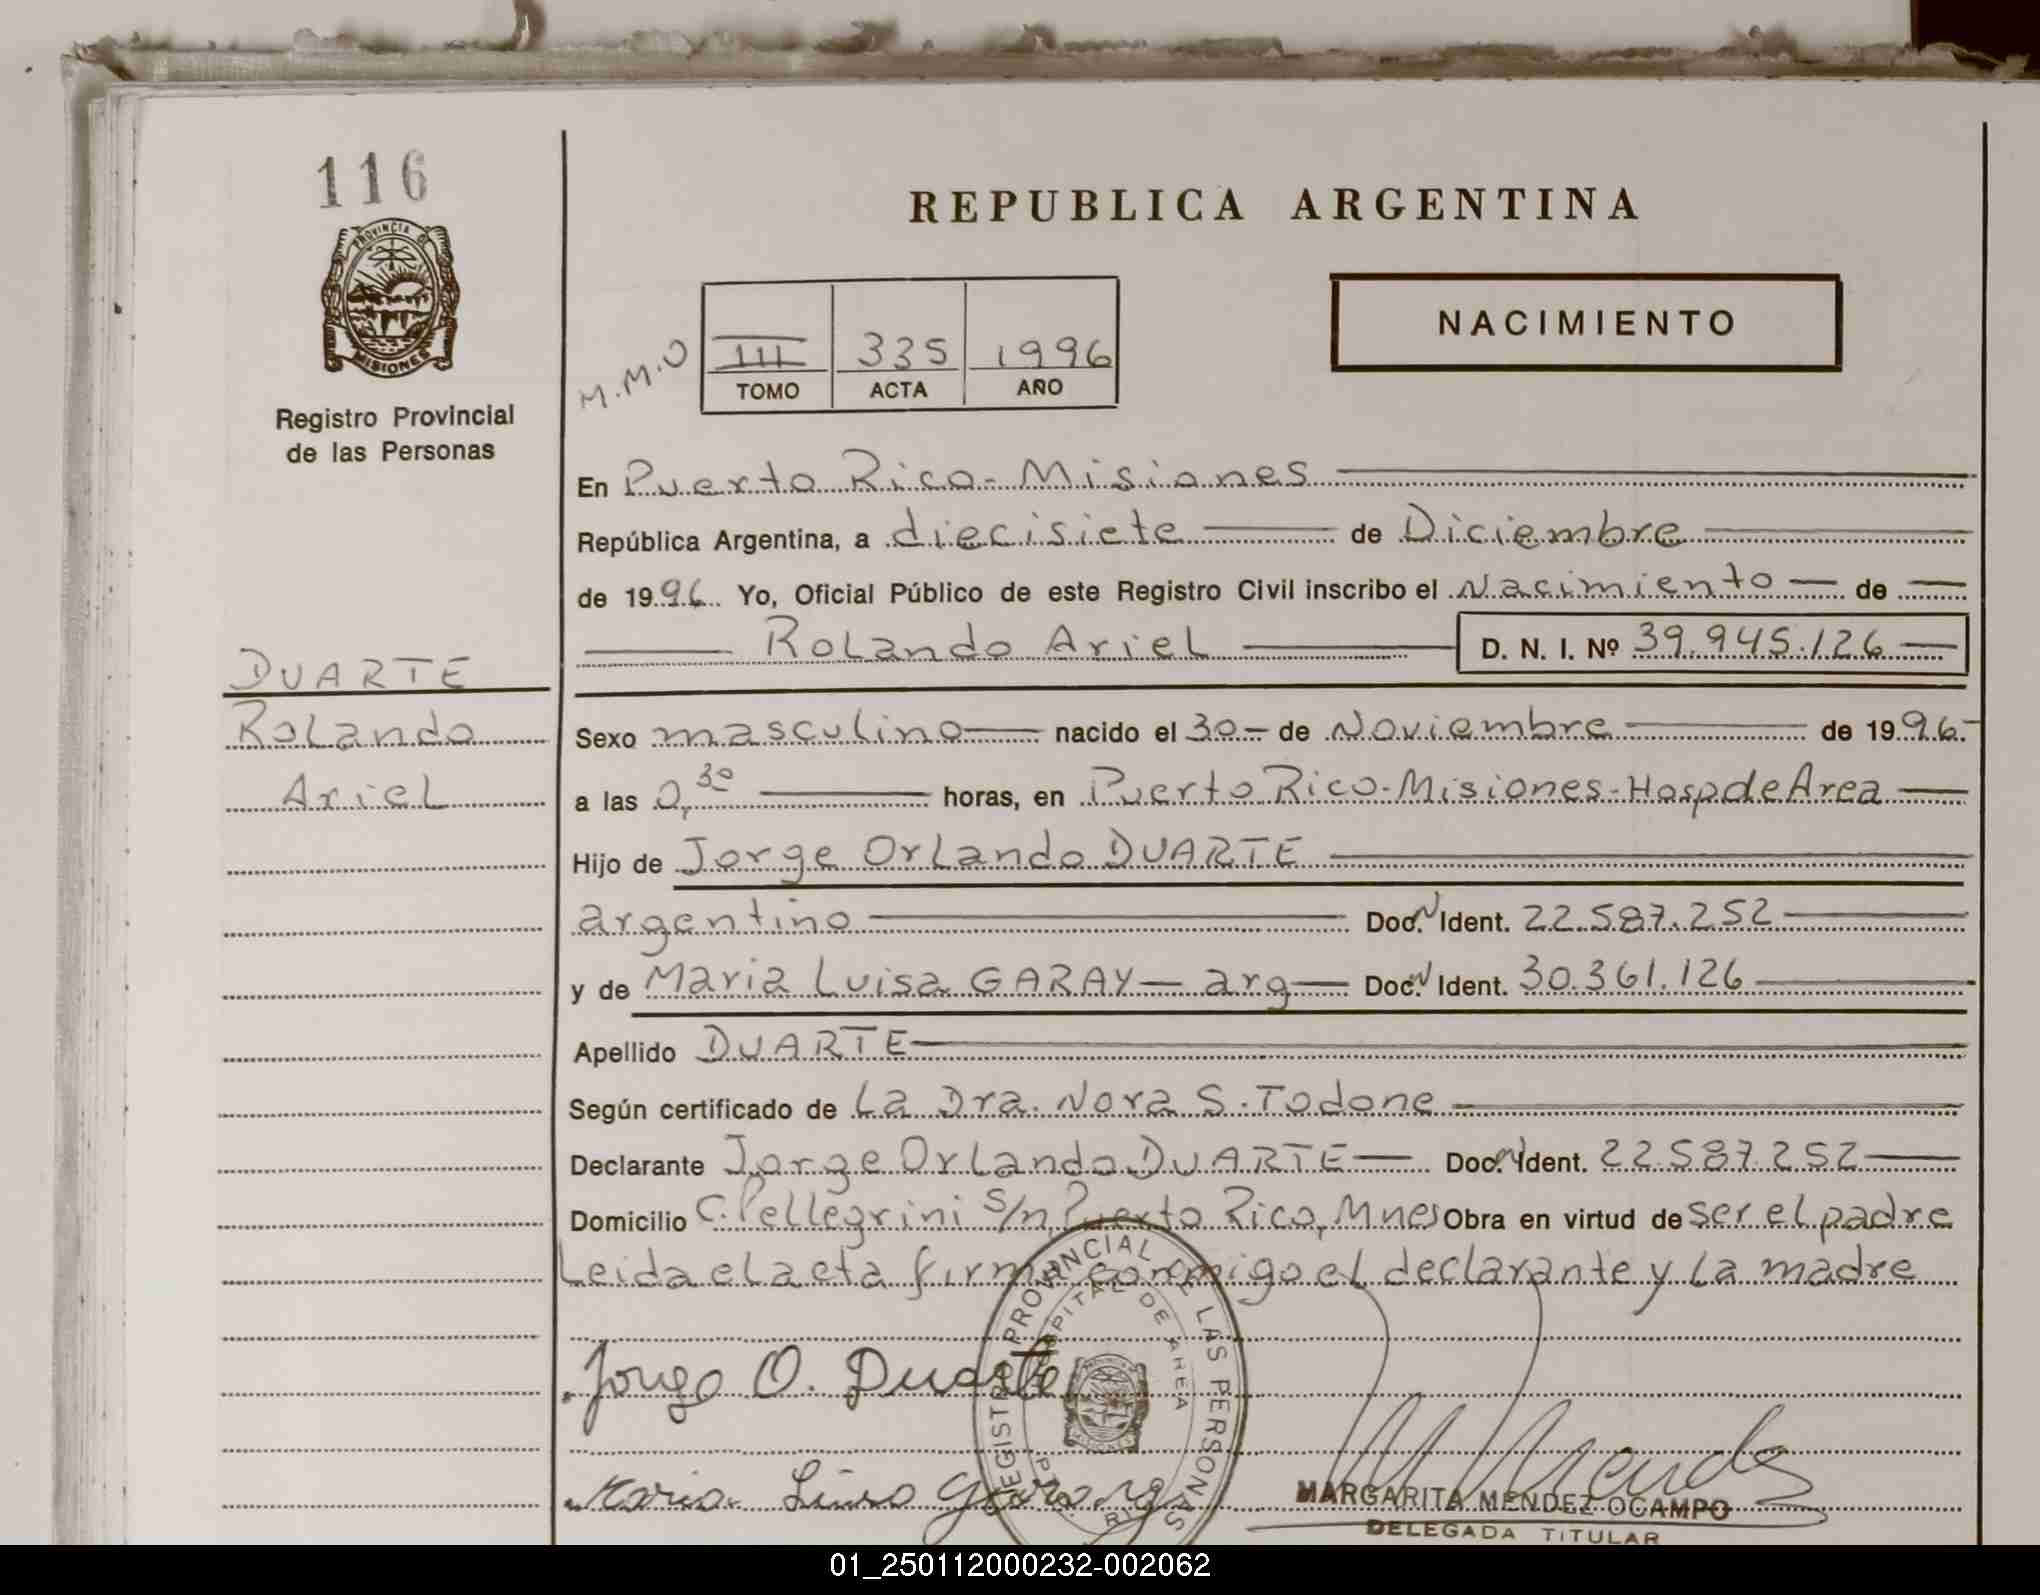 116
PROVINCIA DE
MISIONES
Registro Provincial
de las Personas
DUARTE
Rolando
Ariel
REPUBLICA ARGENTINA
NACIMIENTO
M.M.O
III 335 1996
TOMO ACTA AÑO
En Puerto Rico - Misiones
República Argentina, a diecisiete de Diciembre
de 1996 Yo, Oficial Público de este Registro Civil inscribo el Nacimiento de
Rolando Ariel D. N. I. Nº 39.945.126
Sexo masculino nacido el 30 de Noviembre de 1996.
a las 0,30 horas, en Puerto Rico - Misiones - Hosp de Area
Hijo de Jorge Orlando DUARTE
argentino Doc. Ident. 22.587.252
y de Maria Luisa GARAY - arg Doc. Ident. 30.361.126
Apellido DUARTE
Según certificado de La Dra. Nora S. Todone
Declarante Jorge Orlando DUARTE Doc. Ident. 22.587.252
Domicilio C. Pellegrini s/n, Puerto Rico, Mnes Obra en virtud de ser el padre
Leida el acta firma conmigo el declarante y la madre
REGISTRO PROVINCIAL DE LAS PERSONAS
HOSPITAL DE AREA
RICO
Jorge O. Duarte
Maria Luisa Garay
MARGARITA MENDEZ OCAMPO
DELEGADA TITULAR
01_250112000232-002062